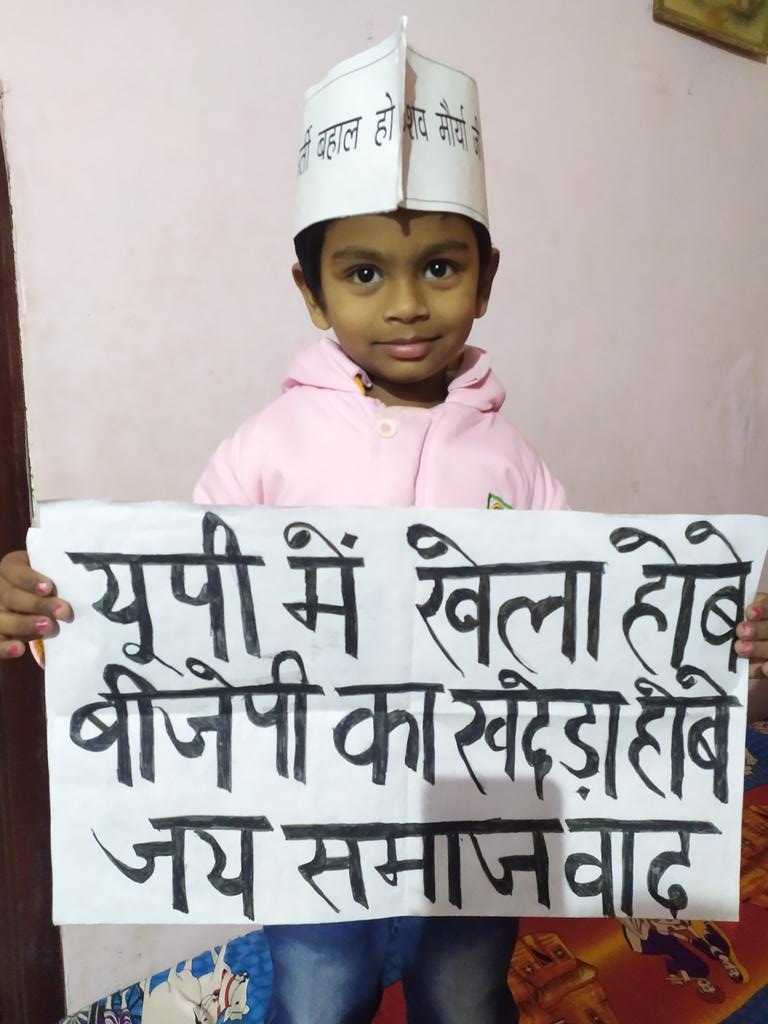 बहाल हो
मौर्या
यूपी में खेला होबे
बीजेपी का खदेड़ा होबे
जय समाजवाद